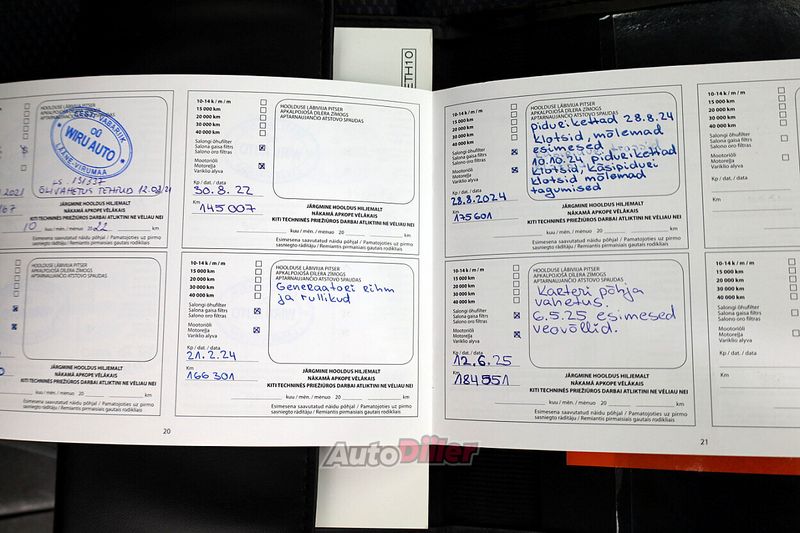 ETH10
HOOLDUSE LÄBIVIIJA PITSER
APKALPOJOŠĀ DĪLERA ZĪMOGS
APTARNAUJANČIO ATSTOVO SPAUDAS
EESTI VABARIIK
OÜ
WIRU AUTO
LÄÄNE-VIRUMAA
LS. 131337
ÕLIVAHETUS TEHTUD 12.08.21
2021
167
JÄRGMINE HOOLDUS HILJEMALT
NĀKAMĀ APKOPE VĒLĀKAIS
KITI TECHNINĖS PRIEŽIŪROS DARBAI ATLIKTINI NE VĖLIAU NEI
10 kuu / mēn. / mėnuo 2022 km
Esimesena saavutatud näidu põhjal / Pamatojoties uz pirmo
sasniegto rādītāju / Remiantis pirmaisiais gautais rodikliais
HOOLDUSE LÄBIVIIJA PITSER
APKALPOJOŠĀ DĪLERA ZĪMOGS
APTARNAUJANČIO ATSTOVO SPAUDAS
JÄRGMINE HOOLDUS HILJEMALT
NĀKAMĀ APKOPE VĒLĀKAIS
KITI TECHNINĖS PRIEŽIŪROS DARBAI ATLIKTINI NE VĖLIAU NEI
kuu / mēn. / mėnuo 20 km
Esimesena saavutatud näidu põhjal / Pamatojoties uz pirmo
sasniegto rādītāju / Remiantis pirmaisiais gautais rodikliais
10-14 k / m / m
15 000 km
20 000 km
30 000 km
40 000 km
Salongi õhufilter
Salona gaisa filtrs
Salono oro filtras
Mootoriõli
Motoreļļa
Variklio alyva
Kp / dat. / data
30.8.22
Km
145007
HOOLDUSE LÄBIVIIJA PITSER
APKALPOJOŠĀ DĪLERA ZĪMOGS
APTARNAUJANČIO ATSTOVO SPAUDAS
JÄRGMINE HOOLDUS HILJEMALT
NĀKAMĀ APKOPE VĒLĀKAIS
KITI TECHNINĖS PRIEŽIŪROS DARBAI ATLIKTINI NE VĖLIAU NEI
kuu / mēn. / mėnuo 20 km
Esimesena saavutatud näidu põhjal / Pamatojoties uz pirmo
sasniegto rādītāju / Remiantis pirmaisiais gautais rodikliais
10-14 k / m / m
15 000 km
20 000 km
30 000 km
40 000 km
Salongi õhufilter
Salona gaisa filtrs
Salono oro filtras
Mootoriõli
Motoreļļa
Variklio alyva
Kp / dat. / data
21.2.24
Km
166301
HOOLDUSE LÄBIVIIJA PITSER
APKALPOJOŠĀ DĪLERA ZĪMOGS
APTARNAUJANČIO ATSTOVO SPAUDAS
Generaatori rihm
ja rullikud
JÄRGMINE HOOLDUS HILJEMALT
NĀKAMĀ APKOPE VĒLĀKAIS
KITI TECHNINĖS PRIEŽIŪROS DARBAI ATLIKTINI NE VĖLIAU NEI
kuu / mēn. / mėnuo 20 km
Esimesena saavutatud näidu põhjal / Pamatojoties uz pirmo
sasniegto rādītāju / Remiantis pirmaisiais gautais rodikliais
20
10-14 k / m / m
15 000 km
20 000 km
30 000 km
40 000 km
Salongi õhufilter
Salona gaisa filtrs
Salono oro filtras
Mootoriõli
Motoreļļa
Variklio alyva
Kp / dat. / data
28.8.2024
Km
175601
HOOLDUSE LÄBIVIIJA PITSER
APKALPOJOŠĀ DĪLERA ZĪMOGS
APTARNAUJANČIO ATSTOVO SPAUDAS
pidurikettad 28.8.24
klotsid, mõlemad
esimesed
10.10.24 pidurikettad
klotsid, käsipiduri
klotsid mõlemad
tagumised
JÄRGMINE HOOLDUS HILJEMALT
NĀKAMĀ APKOPE VĒLĀKAIS
KITI TECHNINĖS PRIEŽIŪROS DARBAI ATLIKTINI NE VĖLIAU NEI
kuu / mēn. / mėnuo 20 km
Esimesena saavutatud näidu põhjal / Pamatojoties uz pirmo
sasniegto rādītāju / Remiantis pirmaisiais gautais rodikliais
10-14 k / m / m
15 000 km
20 000 km
30 000 km
40 000 km
Salongi õhufilter
Salona gaisa filtrs
Salono oro filtras
Mootoriõli
Motoreļļa
Variklio alyva
Kp / dat. / data
12.6.25
Km
184551
HOOLDUSE LÄBIVIIJA PITSER
APKALPOJOŠĀ DĪLERA ZĪMOGS
APTARNAUJANČIO ATSTOVO SPAUDAS
Karteri põhja
vahetus.
6.5.25 esimesed
veovõllid.
JÄRGMINE HOOLDUS HILJEMALT
NĀKAMĀ APKOPE VĒLĀKAIS
KITI TECHNINĖS PRIEŽIŪROS DARBAI ATLIKTINI NE VĖLIAU NEI
kuu / mēn. / mėnuo 20 km
Esimesena saavutatud näidu põhjal / Pamatojoties uz pirmo
sasniegto rādītāju / Remiantis pirmaisiais gautais rodikliais
10-14 k / m / m
15 000 km
20 000 km
30 000 km
40 000 km
Salongi õhufilter
Salona gaisa filtrs
Salono oro filtras
Mootoriõli
Motoreļļa
Variklio alyva
Kp / dat. / data
Km
10-14 k / m / m
15 000 km
20 000 km
30 000 km
40 000 km
Salongi õhufilter
Salona gaisa filtrs
Salono oro filtras
Mootoriõli
Motoreļļa
Variklio alyva
Kp / dat. / data
Km
21
AutoDiller